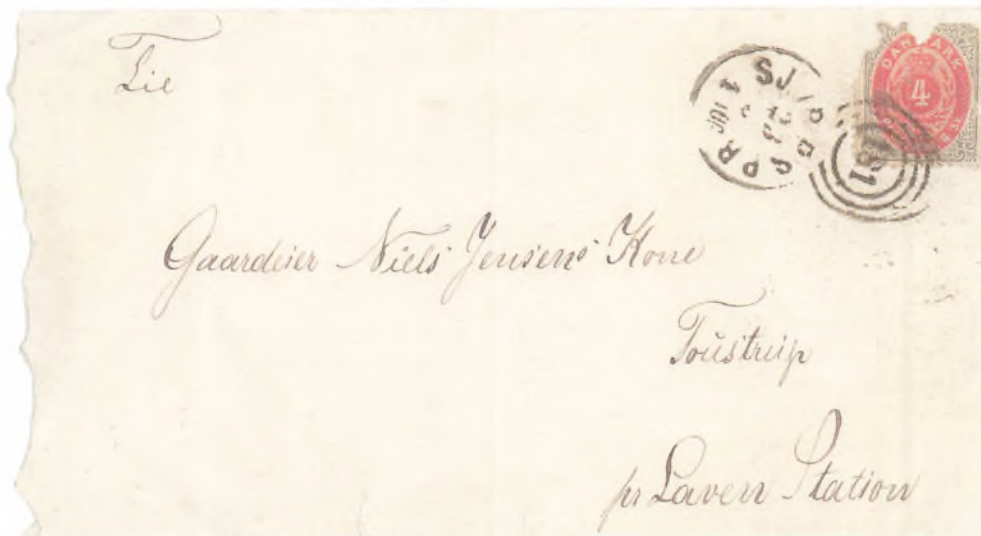 Til
DANMARK
4
181
Gaardeier Niels Jensens Kone
Toustrup
pr Laven Station